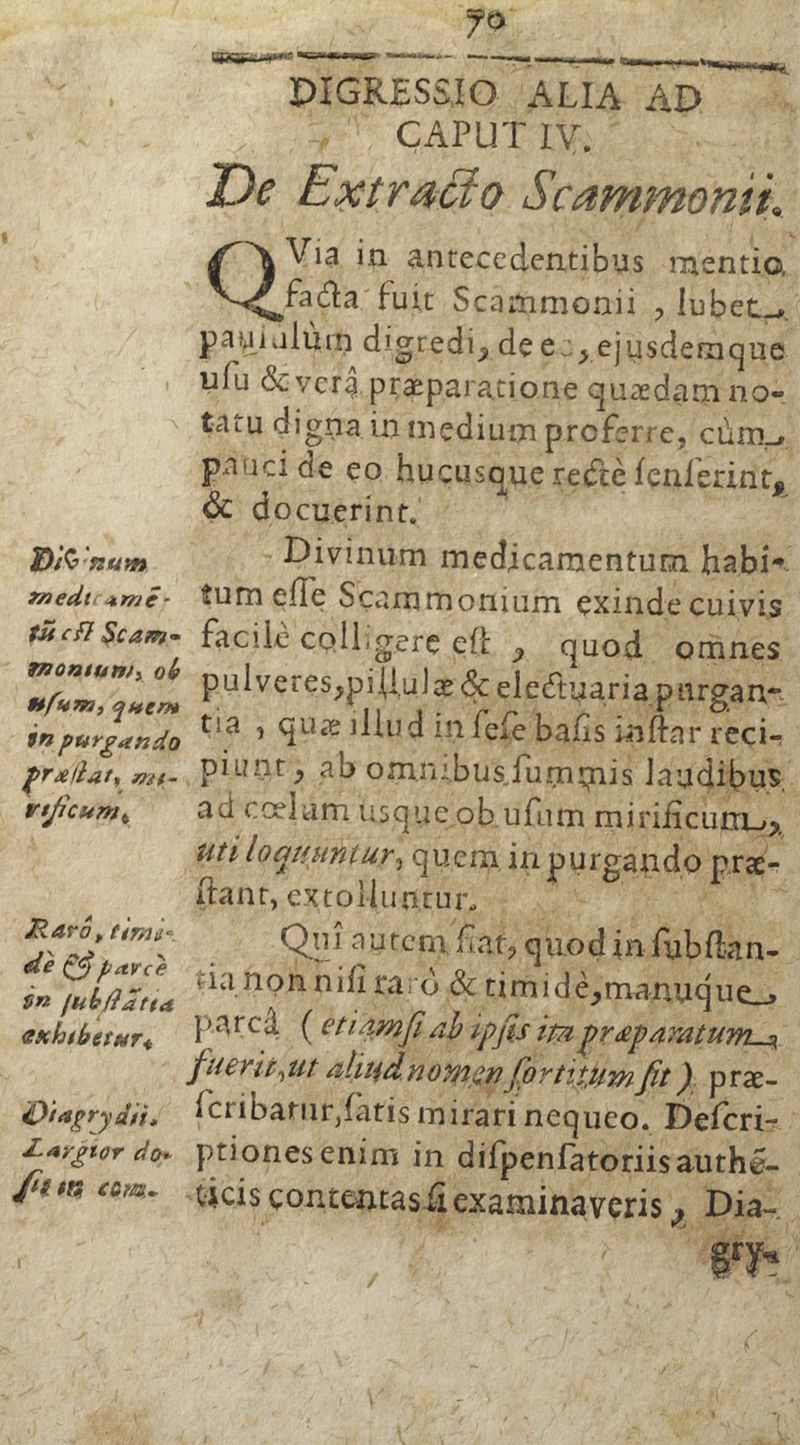 70
DIGRESSIO ALIA AD
CAPUT IV.
De Extracto Scammonii.
QVia in antecedentibus mentio
facta fuit Scammonii , lubet
paululùm digredi, de eo, ejusdemque
uſu & verâ præparatione quædam no-
tatu digna in medium proferre, cùm
pauci de eo hucusque rectè ſenſerint,
& docuerint.
Divinum medicamentum habi-
tum eſſe Scammonium exinde cuivis
facilè colligere eſt , quod omnes
pulveres, pillulæ & electuaria purgan-
tia , quæ illud in ſeſe baſis inſtar reci-
piunt, ab omnibus ſummis laudibus
ad cœlum usque ob uſum mirificum,
uti loquuntur, quem in purgando præ-
ſtant, extolluntur.
Quî autem fiat, quod in ſubſtan-
tia non niſi rarò & timidè, manuque
parcâ ( etiamſi ab ipſis ita præparatum
fuerit, ut aliud nomen ſortitum ſit ) præ-
ſcribatur, ſatis mirari nequeo. Deſcri-
ptiones enim in diſpenſatoriis authē-
ticis contentas ſi examinaveris , Dia-
gry-
Divinum
medicamē-
tū eſt Scam-
monium, ob
uſum, quem
in purgando
præſtat, mi-
rificum.
Rarô, timi-
dè & parcè
in ſubſtātia
exhibetur.
Diagrydii.
Largior do-
ſis in com-